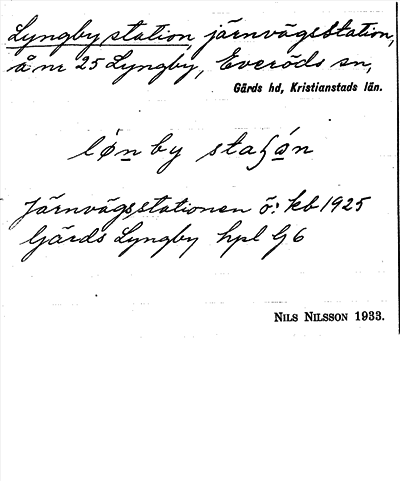 Lyngby station, järnvägsstation,
å nr 25 Lyngby, Everöds sn,
Gärds hd, Kristianstads län.
by
Järnvägsstationen ö: kb 1925
Gärds Lyngby hpl G6
NILS NILSSON 1933.